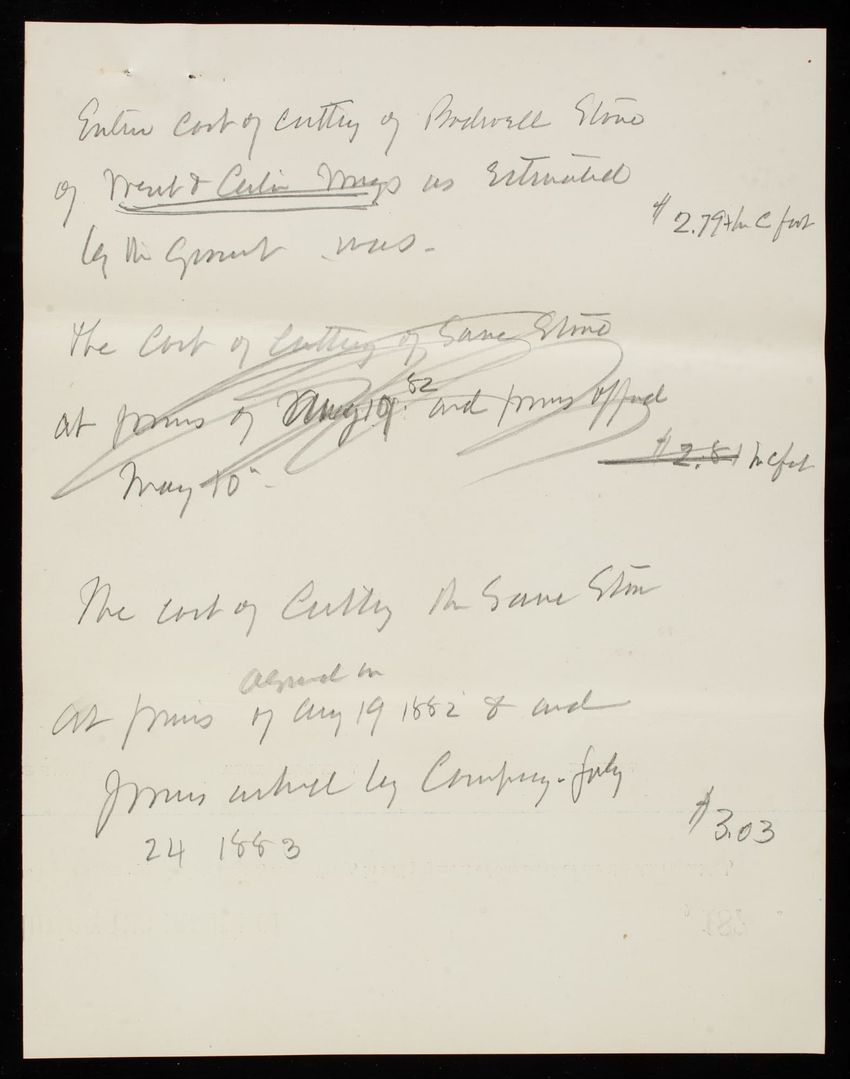 Entire cost of cutting of Bodwell Stone
of West & Center Wings as Estimated
by the Govmt was -
$2.79 per C foot
The Cost of Cutting of Same Stone
at prices of Aug 19. 82 and prices offered
May 10" -
$2.81 per C foot
The cost of Cutting the Same Stone
agreed on
at prices of Aug 19 1882 & and
prices asked by Company - July
24 1883
$3.03